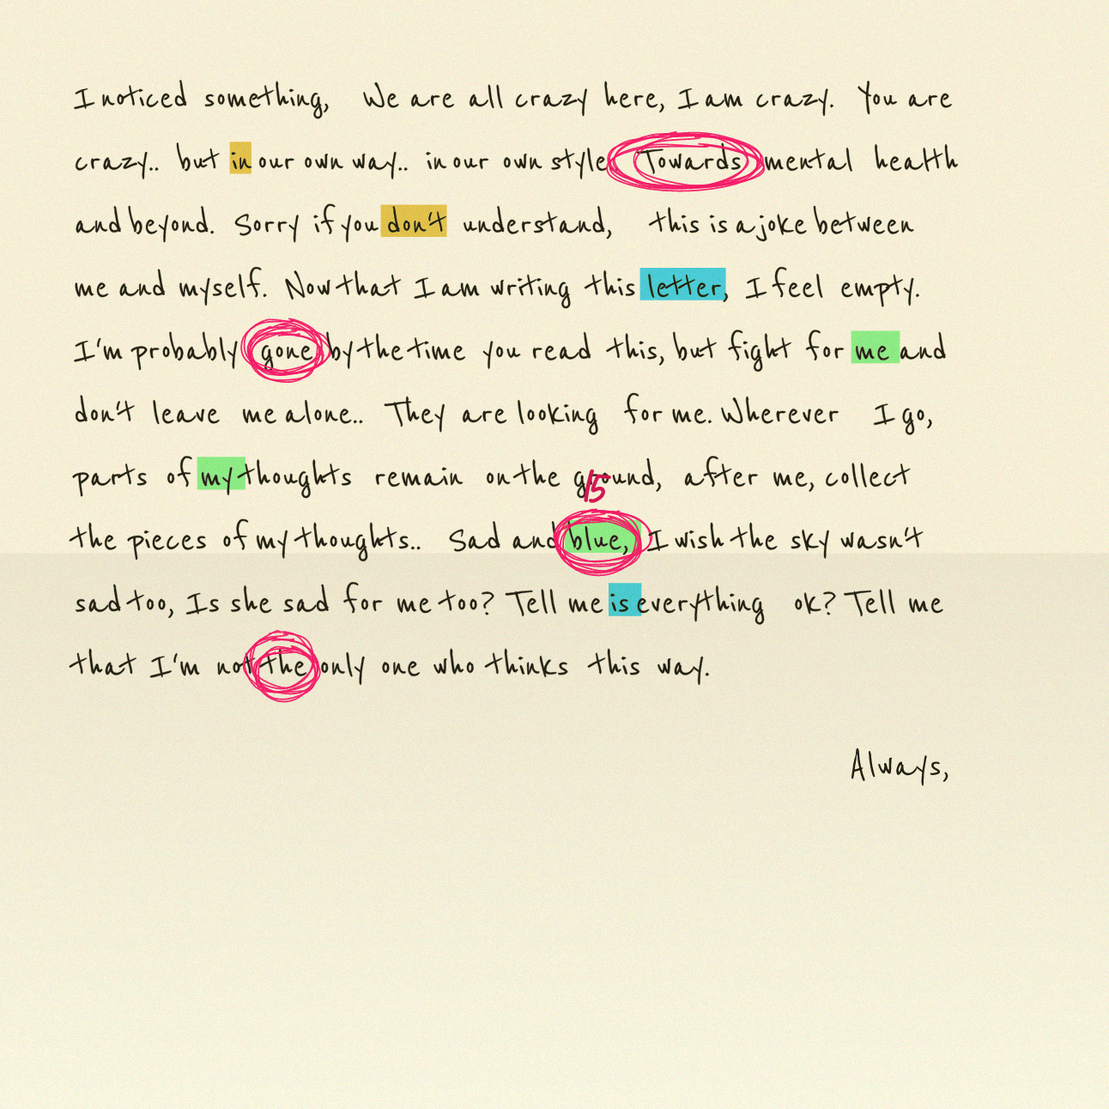 I noticed something, We are all crazy here, I am crazy. You are
crazy.. but in our own way.. in our own style. Towards mental health
and beyond. Sorry if you don't understand, this is a joke between
me and myself. Now that I am writing this letter, I feel empty.
I'm probably gone by the time you read this, but fight for me and
don't leave me alone.. They are looking for me. Wherever I go,
parts of my thoughts remain on the ground, after me, collect
15
the pieces of my thoughts.. Sad and blue, I wish the sky wasn't
sad too, Is she sad for me too? Tell me is everything ok? Tell me
that I'm not the only one who thinks this way.
Always,